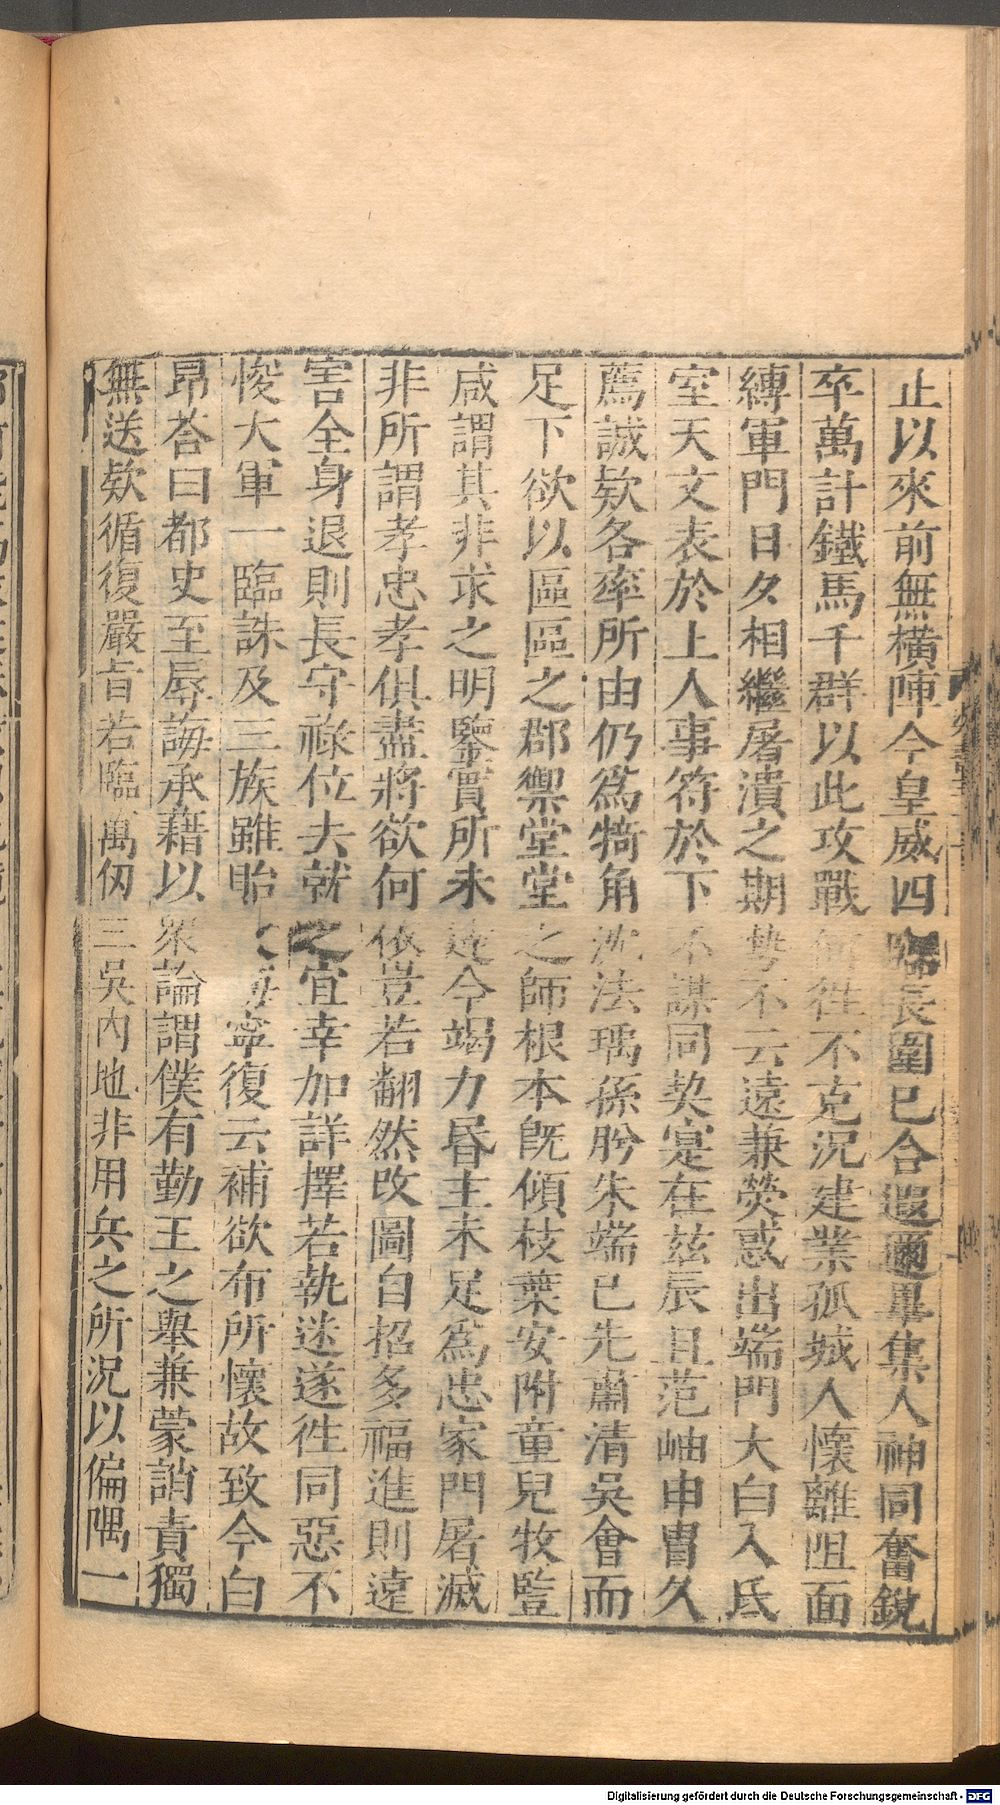 止以來前無橫陣今皇威四臨長圍已合遐邇畢集人神同奮銳
卒萬計鐵馬千群以此攻戰何徃不克況建業孤城人懷離阻面
縛軍門日夕相繼屠潰之期勢不云遠兼熒惑出端門大白入氐
室天文表於上人事符於下不謀同契寔在玆辰且范岫申冑久
薦誠欵各率所由仍爲犄角沈法瑀孫肸朱端已先肅清吳會而
足下欲以區區之郡禦堂堂之師根本旣傾枝葉安附童兒牧豎
咸謂其非求之明鑒實所未達今竭力昬主未足爲忠家門屠滅
非所謂孝忠孝俱盡將欲何依豈若翻然改圖自招多福進則遠
害全身退則長守祿位去就之宜幸加詳擇若執迷遂徃同惡不
悛大軍一臨誅及三族雖貽 寧復云補欲布所懷故致今白
昂荅曰都史至辱誨承藉以衆論謂僕有勤王之舉兼蒙誚責獨
無送欵循復嚴旨若臨萬仭三吳內地非用兵之所況以偏隅一
Digitalisierung gefördert durch die Deutsche Forschungsgemeinschaft - DFG